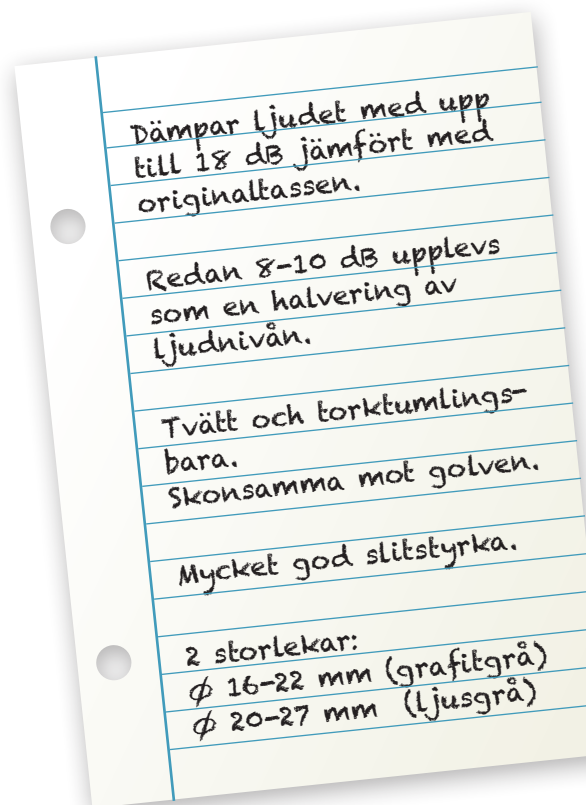 Dämpar ljudet med upp
till 18 dB jämfört med
originaltassen.
Redan 8-10 dB upplevs
som en halvering av
ljudnivån.
Tvätt och torktumlings-
bara.
Skonsamma mot golven.
Mycket god slitstyrka.
2 storlekar:
ø 16-22 mm (grafitgrå)
ø 20-27 mm (ljusgrå)